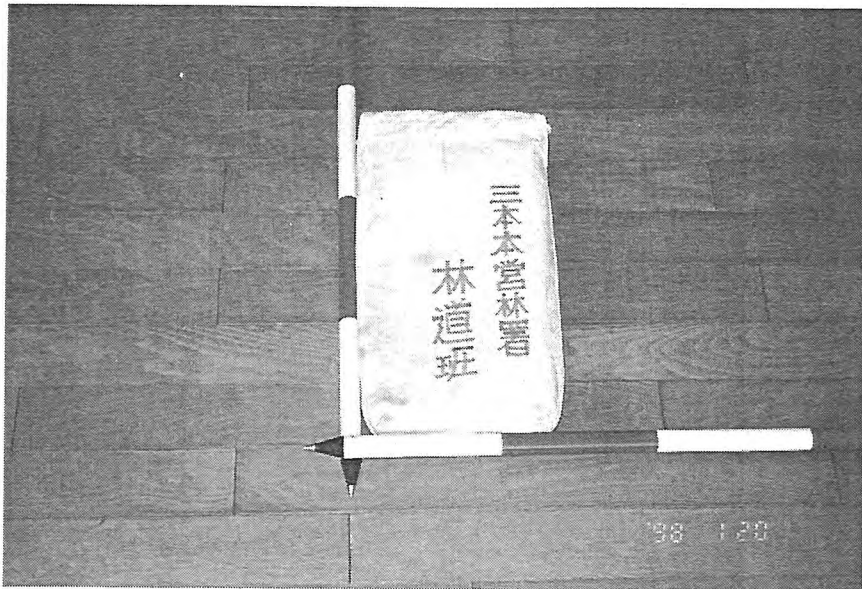 三本木営林署
林道班
'98 1 20